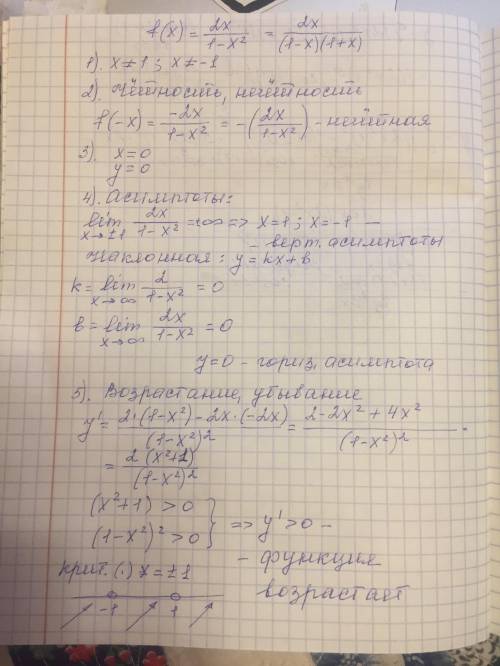 f(x) = 2x/(1-x²) = 2x/((1-x)(1+x))
1). x≠1 ; x≠-1
2). Чётность, нечётность
f(-x) = -2x/(1-x²) = -(2x/(1-x²)) - нечётная
3). x=0
y=0
4). Асимптоты:
lim x→±1 2x/(1-x²) = ∞ => x=1 ; x=-1 —
- верт. асимптоты
Наклонная : y=kx+b
k = lim x→∞ 2/(1-x²) = 0
b = lim x→∞ 2x/(1-x²) = 0
y=0 - гориз. асимптота
5). Возрастание, убывание
y' = (2·(1-x²)-2x·(-2x))/(1-x²)² = (2-2x²+4x²)/(1-x²)² =
= 2(x²+1)/(1-x²)²
(x²+1) > 0
(1-x²)² > 0 } => y' > 0 -
- функция
крит. (.) x = ±1
возрастает
-1 1